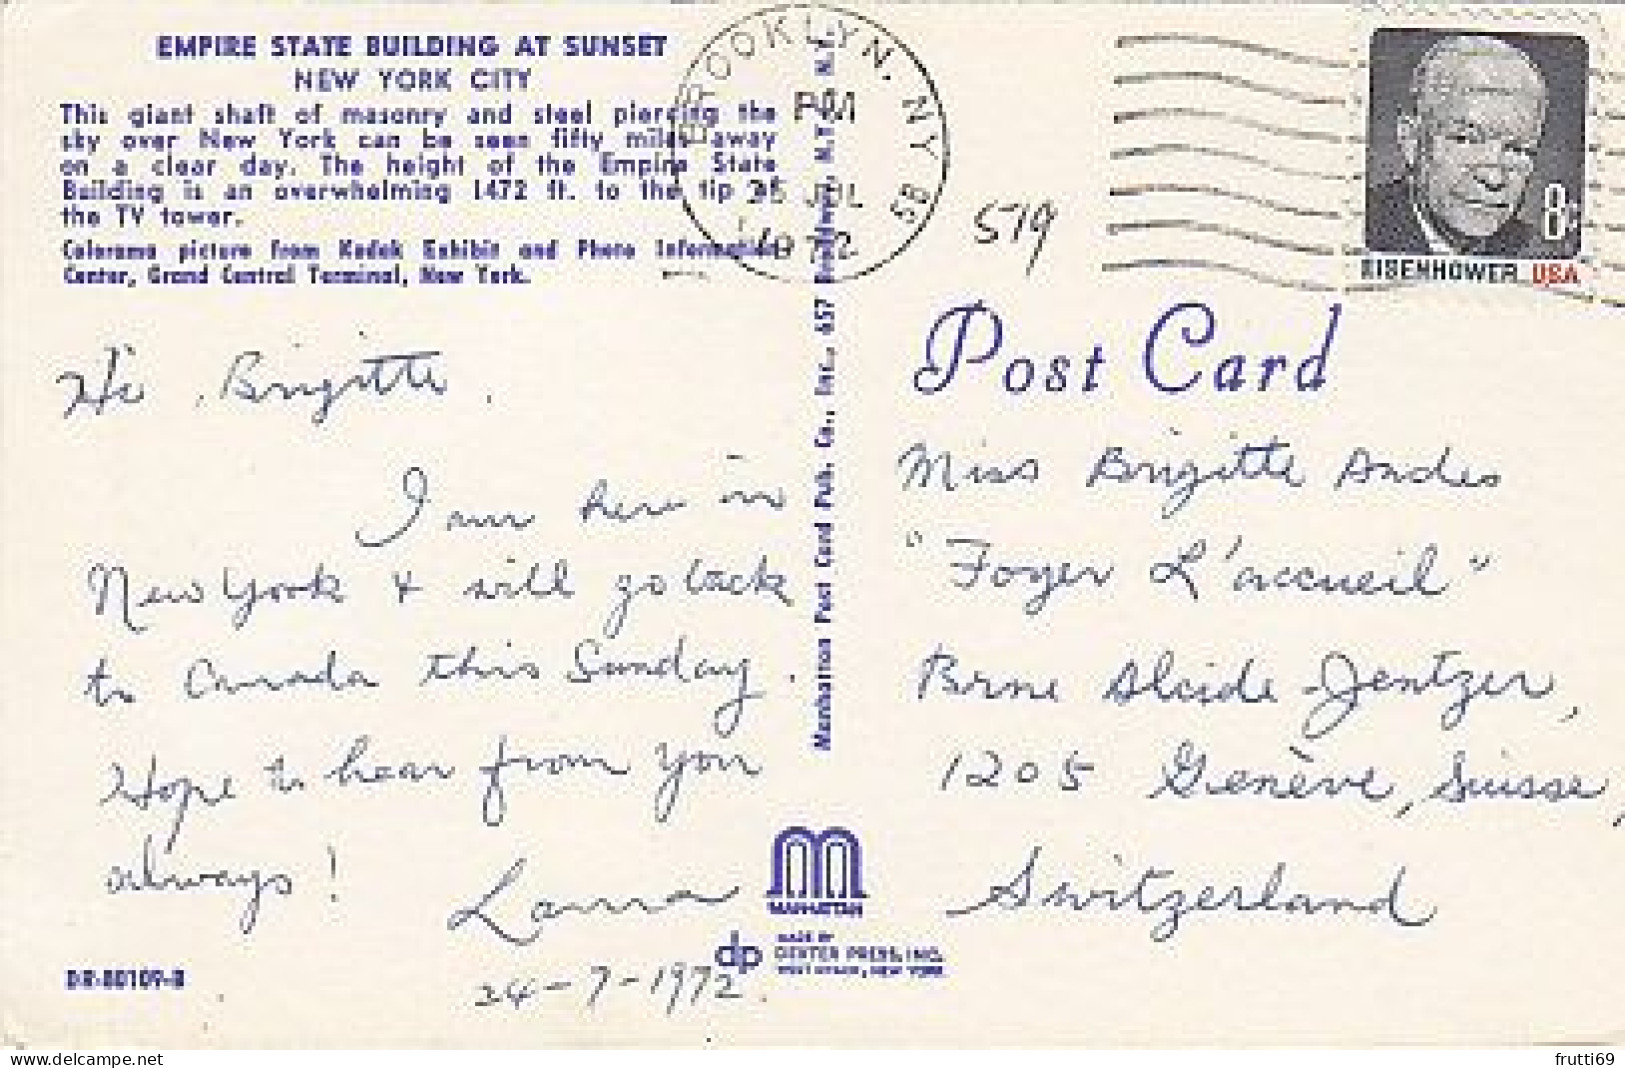 EMPIRE STATE BUILDING AT SUNSET
NEW YORK CITY
This giant shaft of masonry and steel piercing the
sky over New York can be seen fifty miles away
on a clear day. The height of the Empire State
Building is an overwhelming 1472 ft. to the tip of
the TV tower.
Colorama picture from Kodak Exhibit and Photo Information
Center, Grand Central Terminal, New York.
Hi, Brigitte,
I am here in
New York & will go back
to Canada this Sunday.
Hope to hear from you
always!
Laura
24-7-1972.
DR-80109-B
Manhattan Post Card Pub. Co., Inc., 657 Broadway, N.Y., N.Y.
MANHATTAN
dp
MADE BY
DEXTER PRESS, INC.
WEST NYACK, NEW YORK
BROOKLYN, NY
PM
25 JUL
1972
519
8c
EISENHOWER USA
Post Card
Miss Brigitte Andes
"Foyer L'accueil"
8rne Alcide Jentzer,
1205 Genève, Suisse,
Switzerland
frutti69
www.delcampe.net